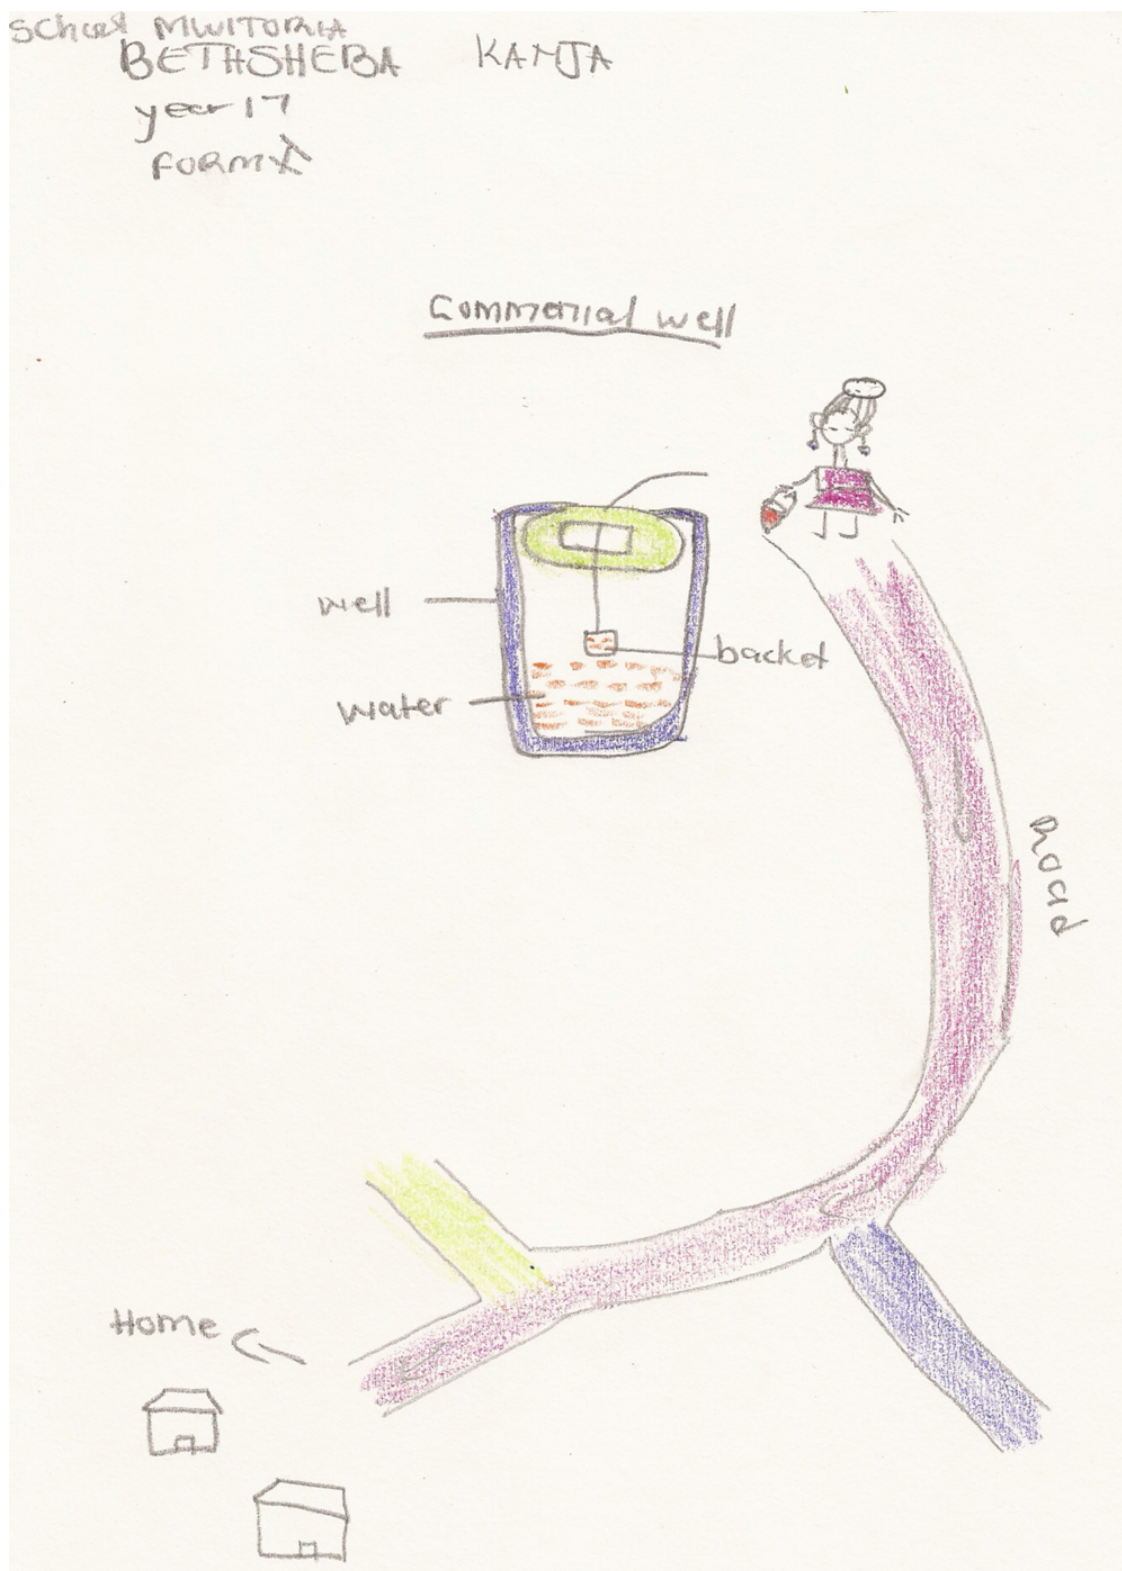 School MWITORIA
BETHSHEBA KANJA
year 17
FORM
Commerial well
well
backet
water
Road
Home